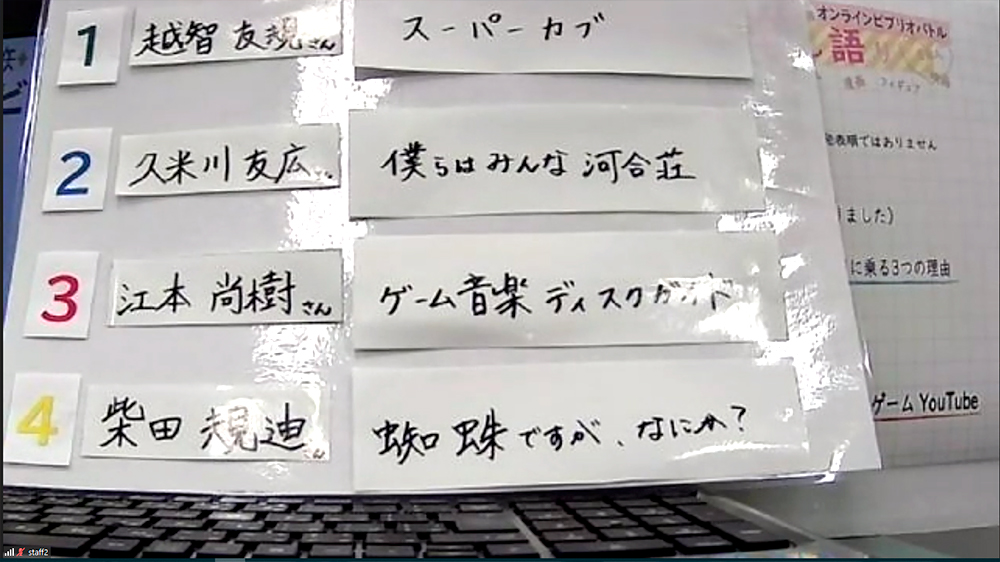 1 越智 友規さん スーパーカブ
2 久米川 友広さん 僕らはみんな河合荘
3 江本 尚樹さん ゲーム音楽ディスクガイド
4 柴田 規迪さん 蜘蛛ですが、なにか?
オンラインビブリオバトル
語り
漫画 フィギュア
発表順ではありません
りました)
に乗る3つの理由
ゲーム YouTube
staff2